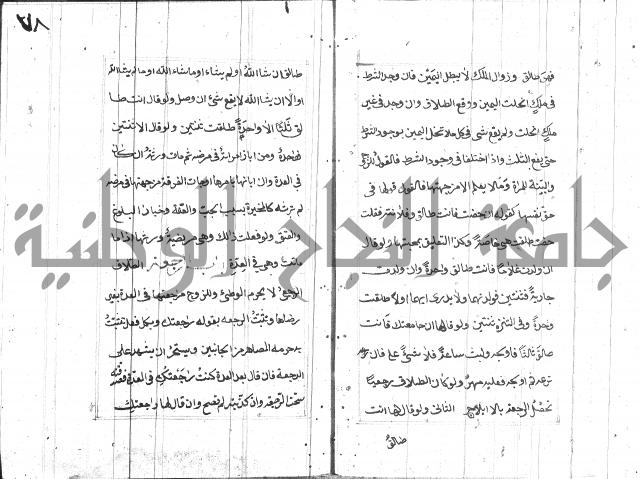 فهي طالق وزوال الملك لا يبطل اليمين فان وجد الشرط
في ملك انحلت اليمين ووقع الطلاق وان وجد في غير
ملك انحلت ولم يقع شي في كلما لا تنحل اليمين بوجود الشرط
حتى يقع الثلث واذا اختلفا في وجود الشرط فالقول للزوج
والبينة للمراة وما لا يعلم الا من جهتها فالقول قولها في
حق نفسها كقوله ان حضت فانت طالق وفلانة فقالت
حضت طلقت هي خاصة وكذا التعليق بمحبتها ولو قال
ان ولدت غلاما فانت طالق واحدة وان ولدت
جارية فثنتين فولدتهما ولا يدرى ايهما اولا طلقت
واحدة وفي التنزه ثنتين ولو قال لها ان جامعتك فانت
طالق ثلاثا فاولجه ولبث ساعة فلا شئ عليه فان نزعه
ثم اولجه فعليه مهر ولو كان الطلاق رجعيا
تحصل الرجعة بالايلاج الثاني ولو قال لها انت
طالق
٣٨
طالق ان شا الله او لم يشاء او ما شاء الله او ما لم يشا الله
او الا ان يشا الله لا يقع شئ ان وصل ولو قال انت طا
لق ثلثا الا واحدة طلقت ثنتين ولو قال الا ثنتين
فواحدة ومن ابان امراته في مرضه ثم مات ورثته ان كانت
في العدة وان ابانها بامرها او جات الفرقة من جهتها في مرضه
لم ترثه كالمخيرة بسبب الجب والعنة وخيار البلوغ
والعتق ولو فعلت ذلك وهي مريضة ورثها اذا ما
ماتت وهي في العدة الطلاق
الرجعي لا يحرم الوطئ وللزوج مراجعتها في العدة بغير
رضاها وتثبت الرجعة بقوله رجعتك وبكل فعل تثبت
به حرمة المصاهرة من الجانبين ويستحب ان يشهد على
الرجعة فان قال بعد العدة كنت راجعتك في العدة فصدقته
صحت الرجعة وان كذبته لم تصح وان قال لها راجعتك
جامعة النجاح الوطنية